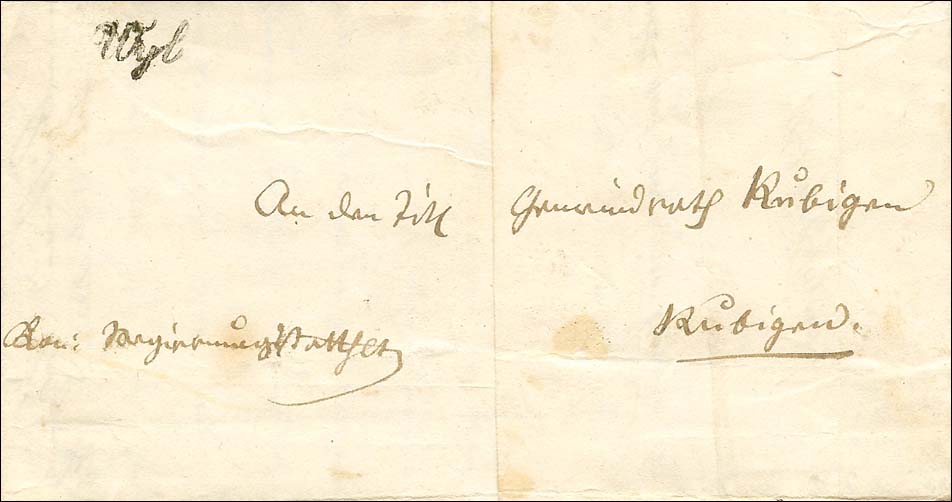 Wyl
An den Titl Gemeindrath Rubigen
Rubigen.
Regierungsstatthlt